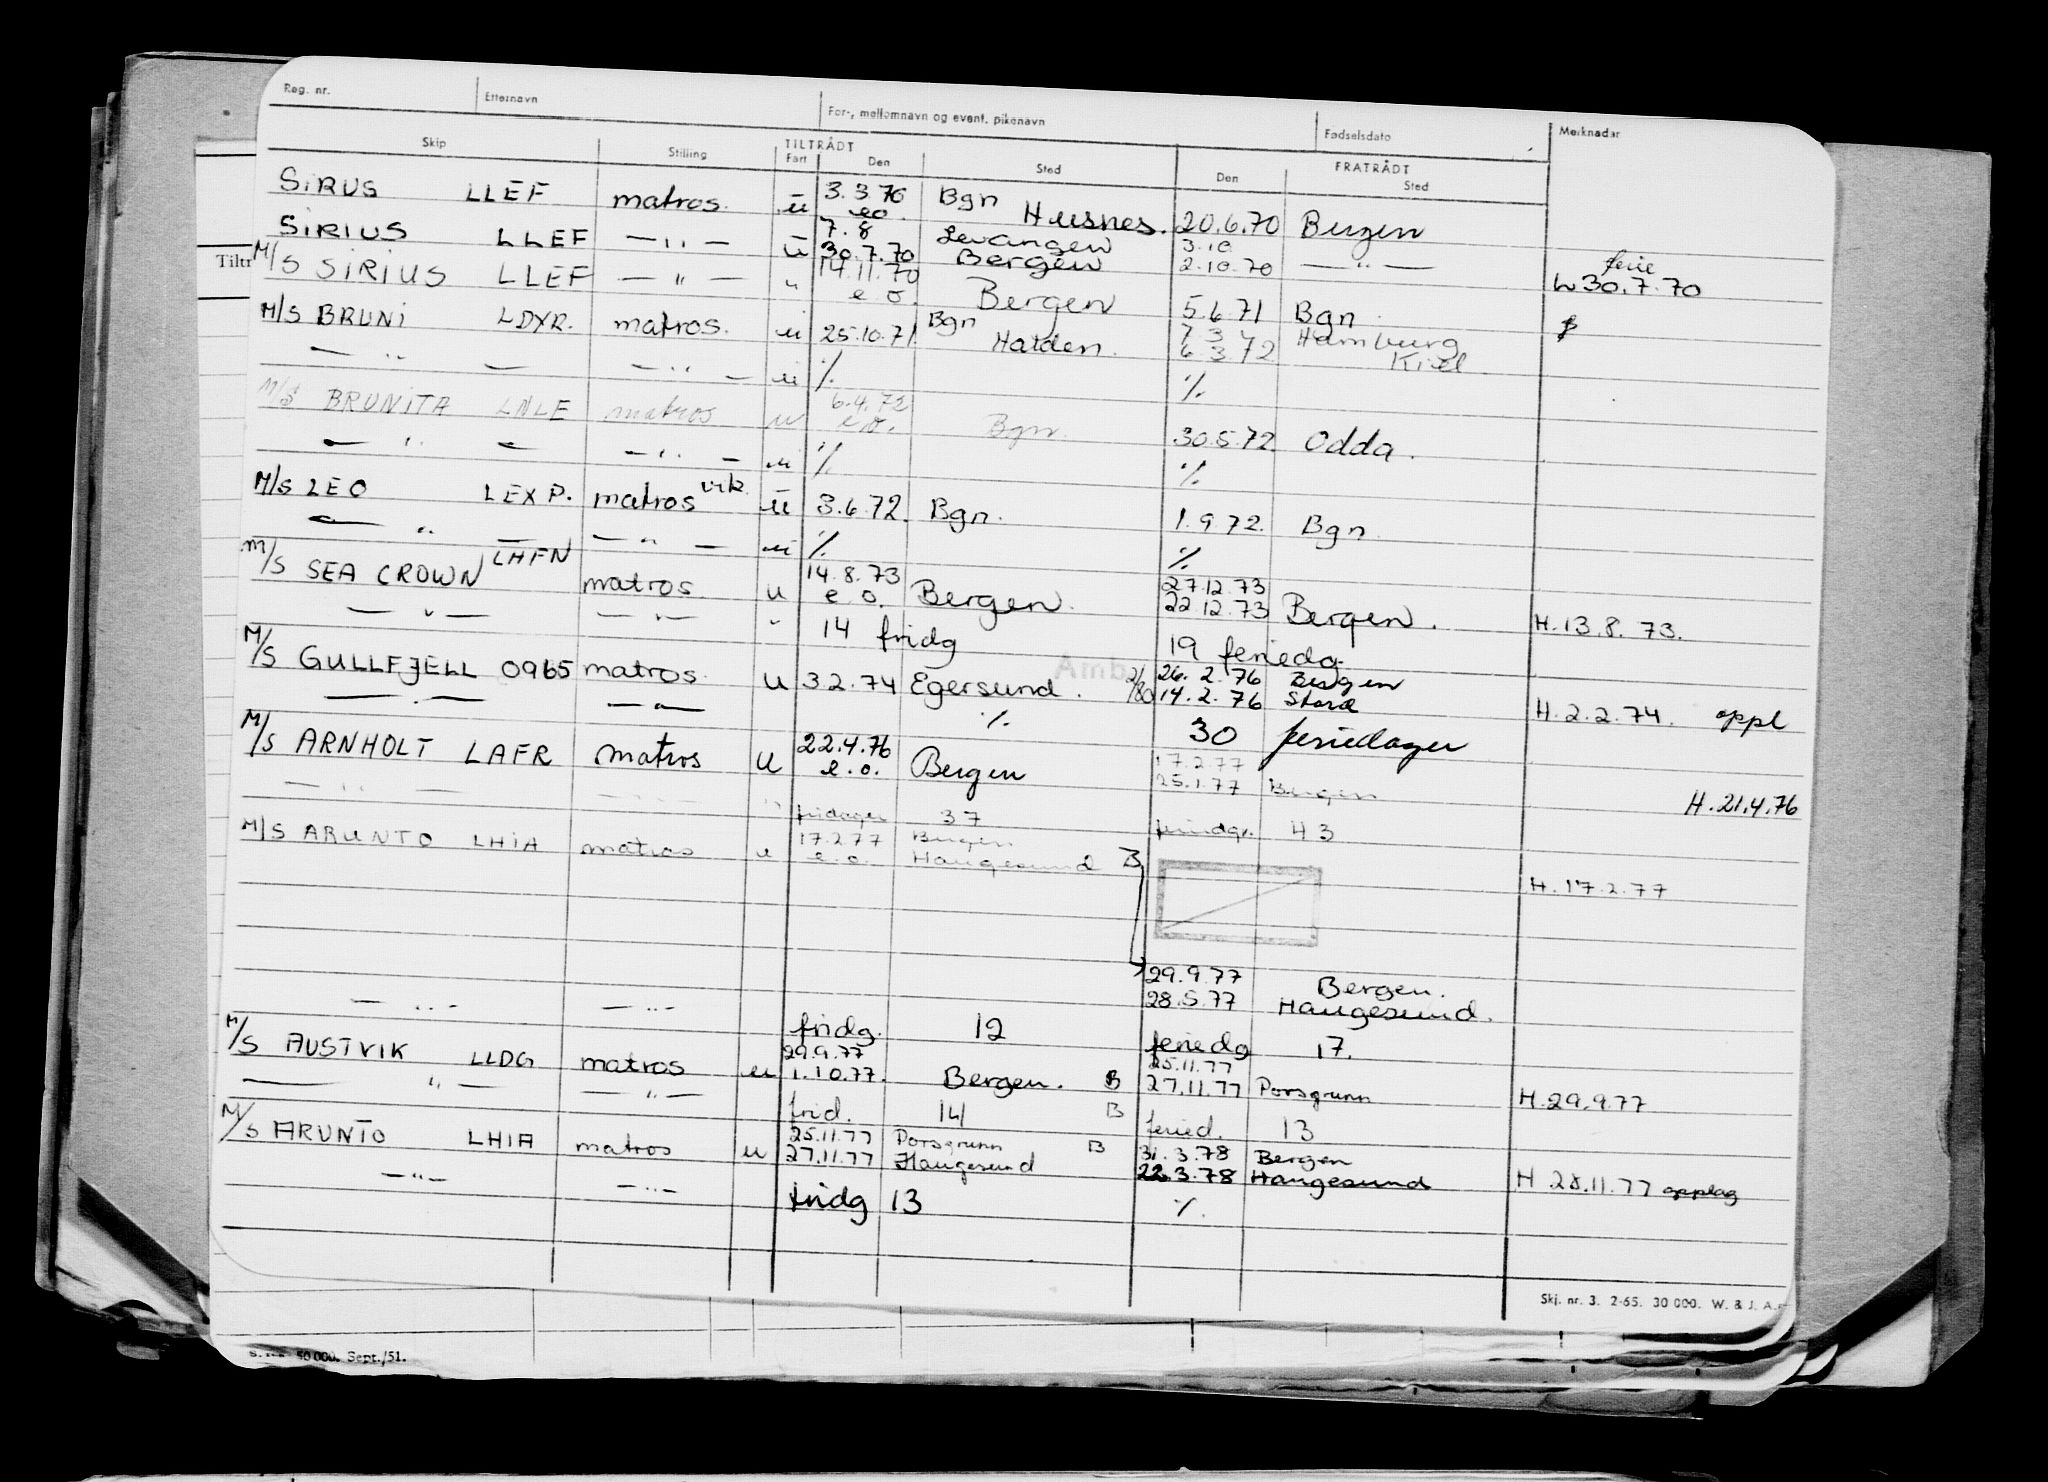 Reg. nr. Etternavn For-, mellomnavn og event. pikenavn Fødselsdato Merknader
Skip Stilling TILTRÅDT FRATRÅDT
Fart Den Sted Den Sted
SIRUS LLEF matros. u 3.3.70 Bgn
eo. Husnes. 20.6.70 Bergen
SIRIUS LLEF —„— u 7.8 Levangen 3.10
30.7.70 Bergen 2.10.70 —„— ferie
M/S SIRIUS LLEF —„— „ 14.11.70 30.7.70
e o. Bergen 5.6.71 Bgn
M/S BRUNI LDYR. matros. u 25.10.71 Bgn 7 3 Hamburg
Halden. 6 3 72 Kiel
—„— —„— u % %
M/S BRUNITA LNLE matros u 6.4.72
e.o. Bgn. 30.5.72 Odda.
—„— —„— u % %
M/S LEO LEXP. matros vik. u 3.6.72. Bgn. 1.9 72. Bgn
—„— —„— u % %
M/S SEA CROWN LHFN matros. u 14.8.73 27.12.73
e.o. Bergen. 22.12.73 Bergen. H.13.8.73.
—„— —„— „ 14 fridg 19 feriedg.
M/S GULLFJELL 0965 matros. u 3.2.74 Egersund. 2/80 26.2.76 Bergen
14.2.76 Stord H.2.2.74. oppl
—„— —„— % 30 feriedager
M/S ARNHOLT LAFR matros u 22.4.76 17.2.77
e.o. Bergen 25.1.77 Bergen H.21.4.76
—„— —„— „ fridager 37 feriedgr. 43
M/S ARUNTO LHIA matros u 17.2.77 Bergen
e.o. Haugesund B H.17.2.77
29.9.77 Bergen.
28.5.77 Haugesund.
—„— —„— fridg. 12 feriedg 17.
M/S AUSTVIK LLDG matros u 29.9.77 25.11.77
1.10.77. Bergen. B 27.11.77 Porsgrunn H.29.9.77
—„— —„— frid. 14 B feried. 13
M/S ARUNTO LHIA matros u 25.11.77 Porsgrunn B 31.3.78 Bergen
27.11.77 Haugesund 22.3.78 Haugesund H 28.11.77 opplag
—„— —„— fridg 13 %
Skj. nr. 3. 2-65. 30 000. W. & J. A.
50 000. Sept./51.